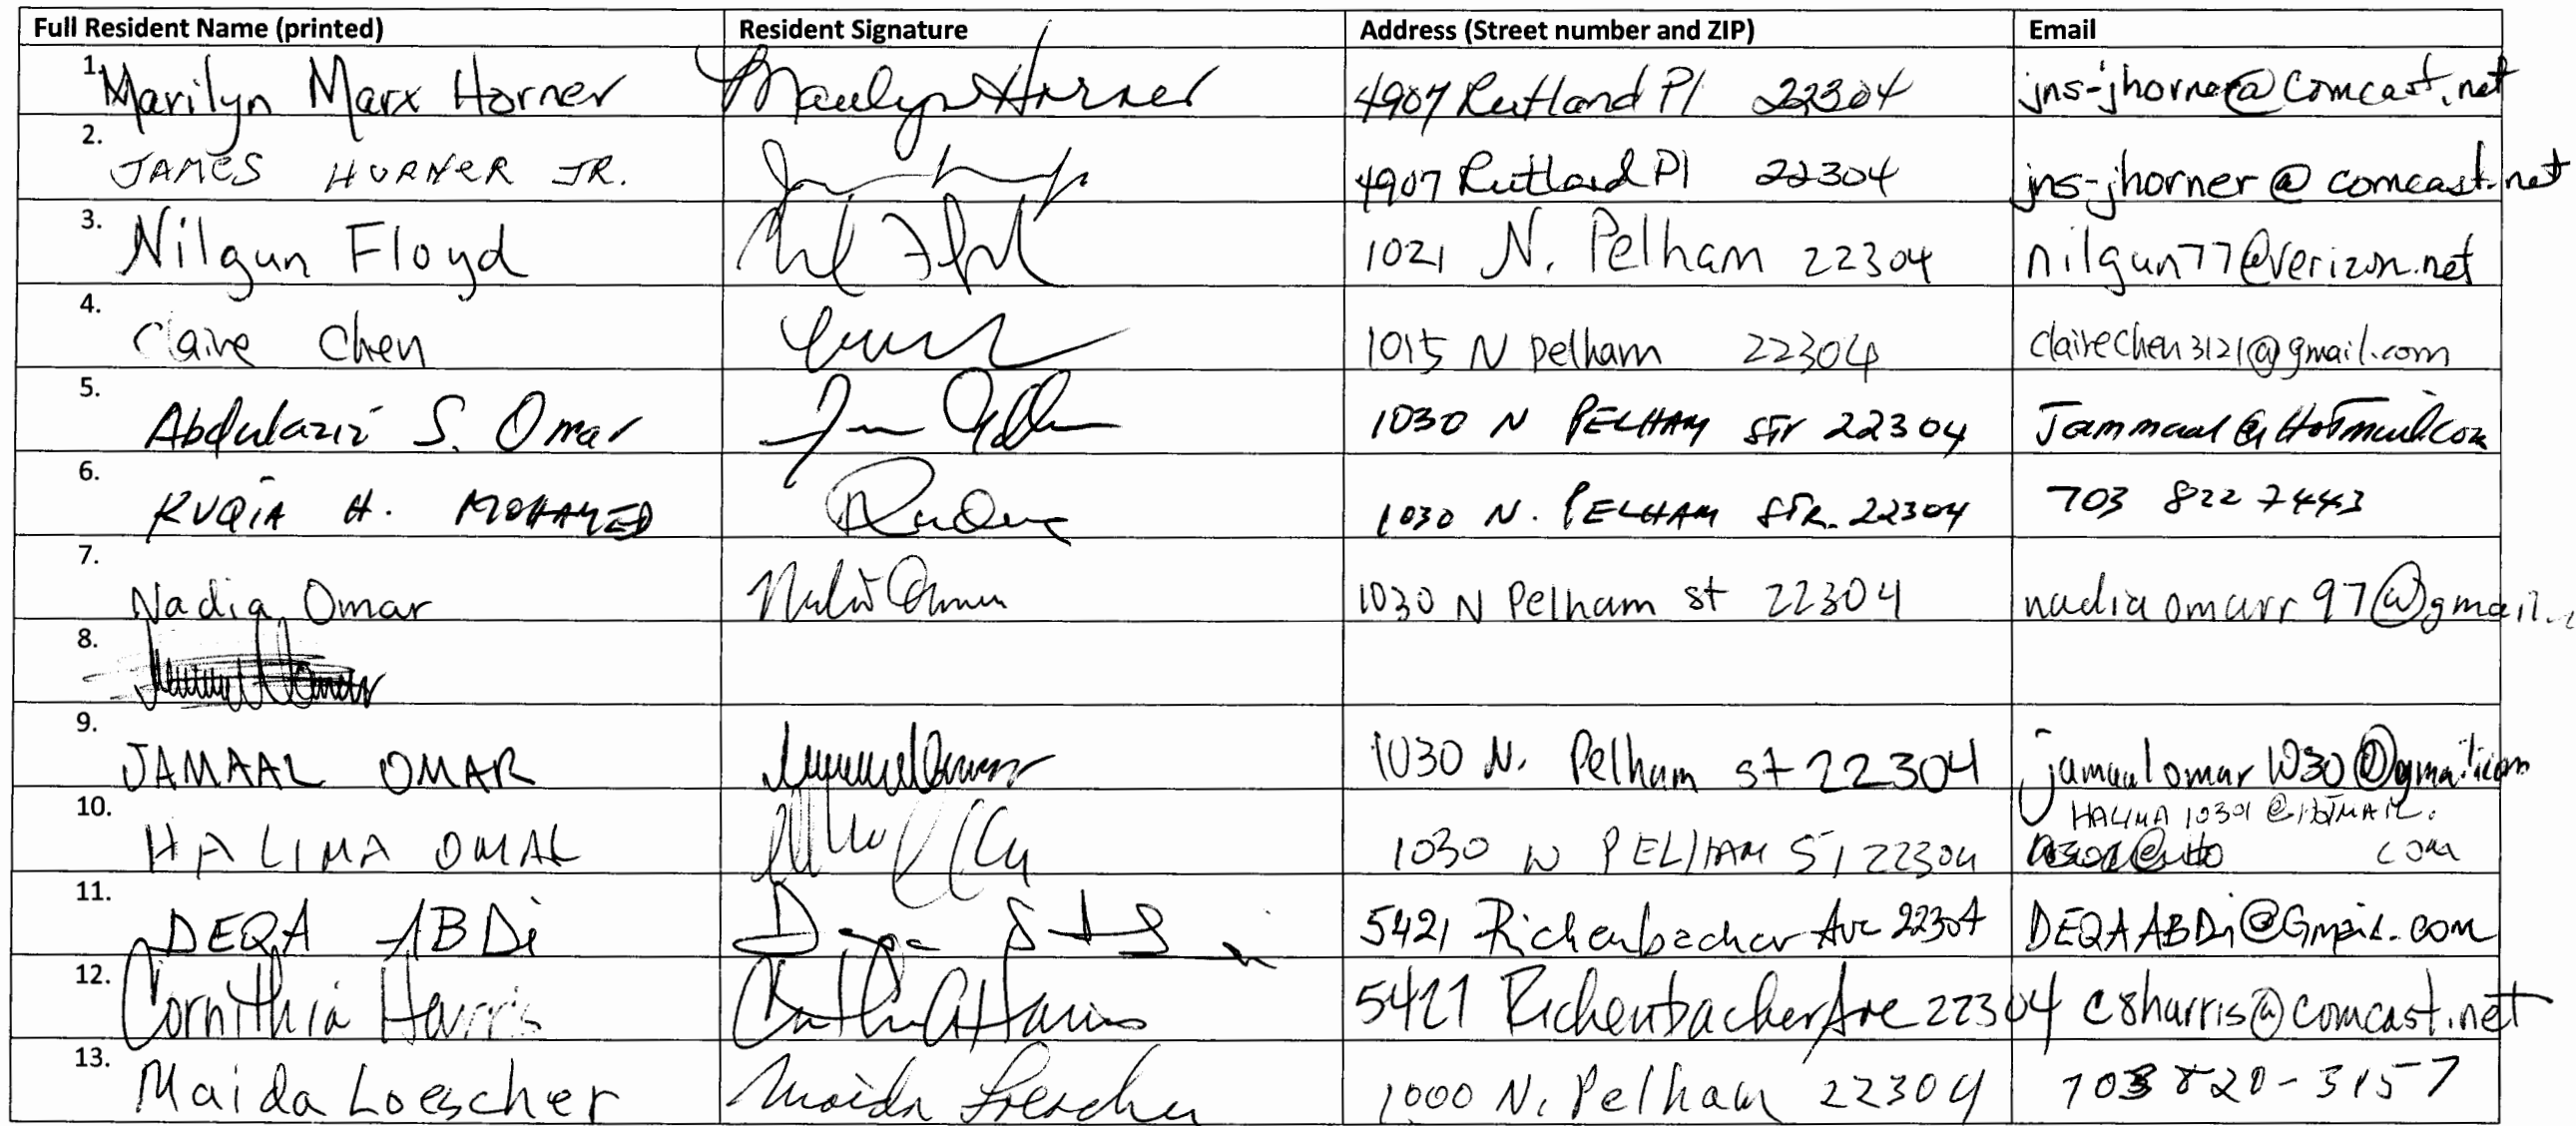 Full Resident Name (printed) Resident Signature Address (Street number and ZIP) Email
1. Marilyn Marx Horner Marilyn Horner 4907 Rutland Pl 22304 jns-jhorner@comcast.net
2. JAMES HORNER JR. 4907 Rutland Pl 22304 jns-jhorner@comcast.net
3. Nilgun Floyd 1021 N. Pelham 22304 nilgun77@verizon.net
4. Claire Chen 1015 N pelham 22304 clairechen3121@gmail.com
5. Abdulaziz S. Omar 1030 N PELHAM STr 22304 Jammaal@Hotmail.com
6. RUQIA H. MOHAMED 1030 N. PELHAM STR. 22304 703 822 7443
7. Nadia Omar Nadia Omar 1030 N Pelham st 22304 nadiaomarr97@gmail.
8.
9. JAMAAL OMAR 1030 N. Pelham st 22304 jamaalomar1030@gmail.com
10. HALIMA OMAR 1030 N PELHAM ST 22304 HALIMA10301@HOTMAIL.
com
11. DEQA ABDi 5421 Richenbacher Ave 22304 DEQAABDi@Gmail.com
12. Cornithia Harris 5421 Richenbacher Ave 22304 c8harris@comcast.net
13. Maida Loescher Maida Loescher 1000 N. Pelham 22304 703 820-3157